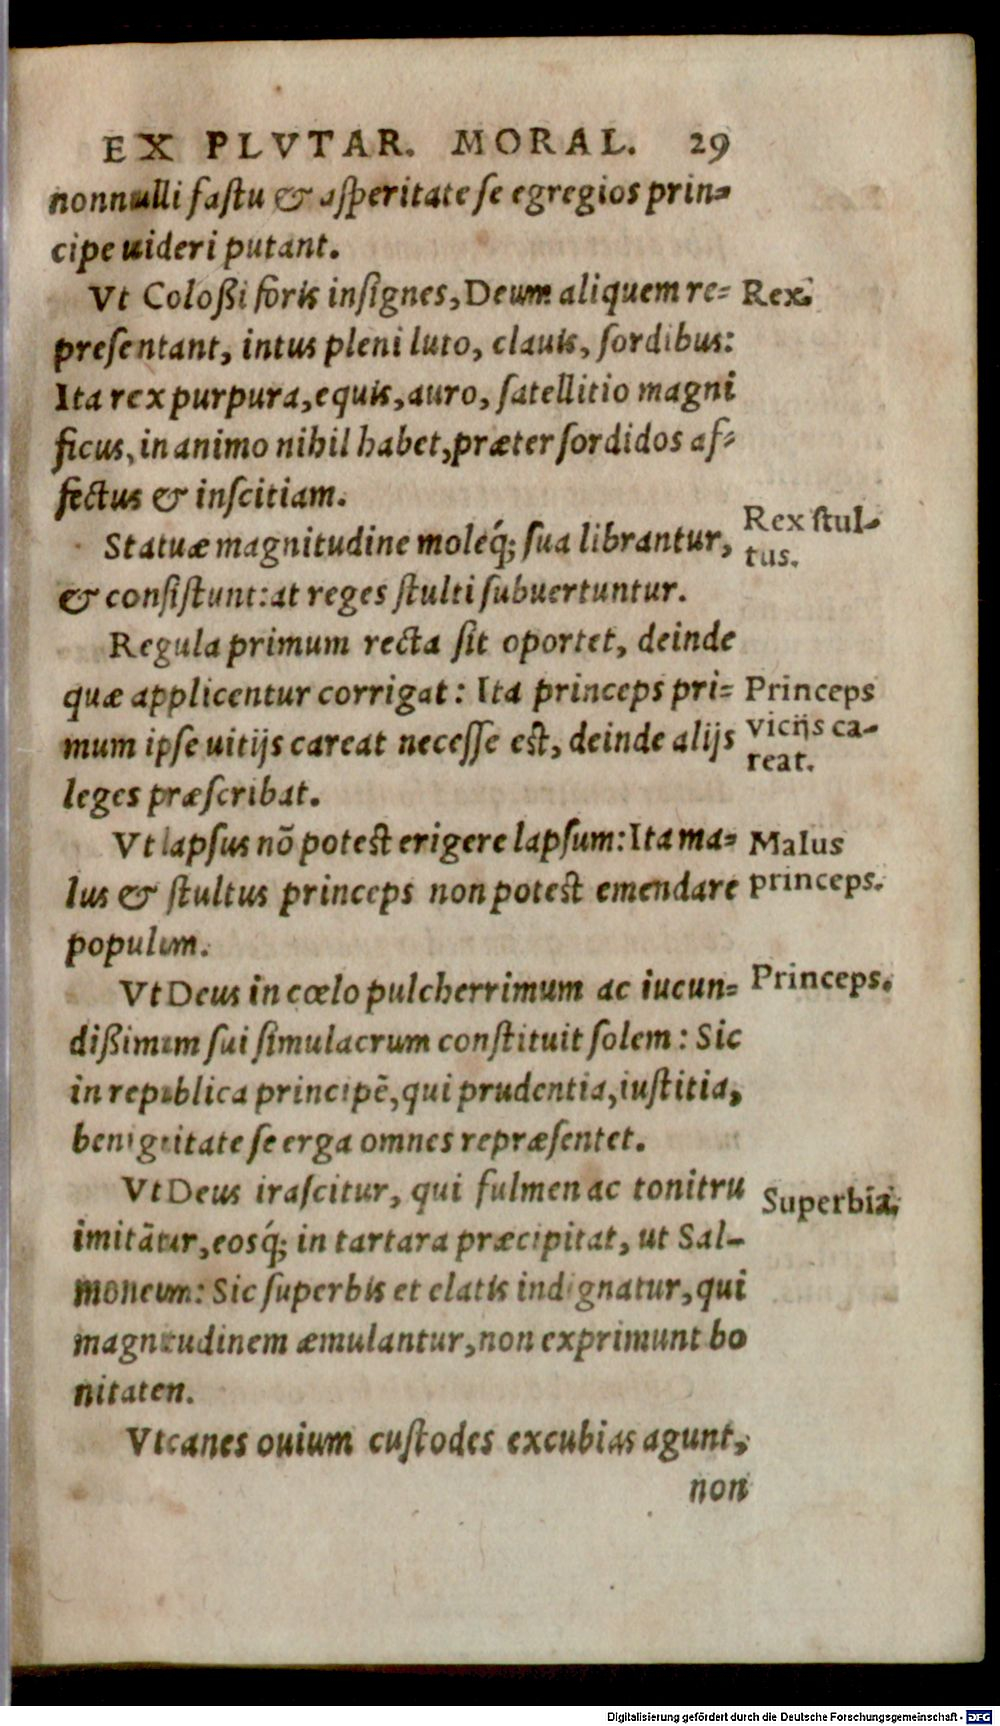 EX PLVTAR. MORAL. 29
nonnulli faſtu & aſperitate ſe egregios prin=
cipe uideri putant.
Vt Coloßi foris inſignes, Deum aliquem re= Rex.
preſentant, intus pleni luto, clauis, ſordibus:
Ita rex purpura, equis, auro, ſatellitio magni
ficus, in animo nihil habet, præter ſordidos af=
fectus & inſcitiam.
Statuæ magnitudine moleq́; ſua librantur, Rex ſtul-
tus.
& conſiſtunt: at reges ſtulti ſubuertuntur.
Regula primum recta ſit oportet, deinde
quæ applicentur corrigat: Ita princeps pri= Princeps
mum ipſe uitijs careat neceſſe eſt, deinde alijs vicijs ca-
reat.
leges præſcribat.
Vt lapſus nō poteſt erigere lapſum: Ita ma= Malus
lus & ſtultus princeps non poteſt emendare princeps.
populum.
Vt Deus in cœlo pulcherrimum ac iucun= Princeps.
dißimum ſui ſimulacrum conſtituit ſolem: Sic
in republica principē, qui prudentia, iuſtitia,
benignitate ſe erga omnes repræſentet.
Vt Deus iraſcitur, qui fulmen ac tonitru Superbia.
imitātur, eosq́; in tartara præcipitat, ut Sal-
moneum: Sic ſuperbis et elatis indignatur, qui
magnitudinem æmulantur, non exprimunt bo
nitaten.
Vt canes ouium cuſtodes excubias agunt,
non
Digitalisierung gefördert durch die Deutsche Forschungsgemeinschaft - DFG